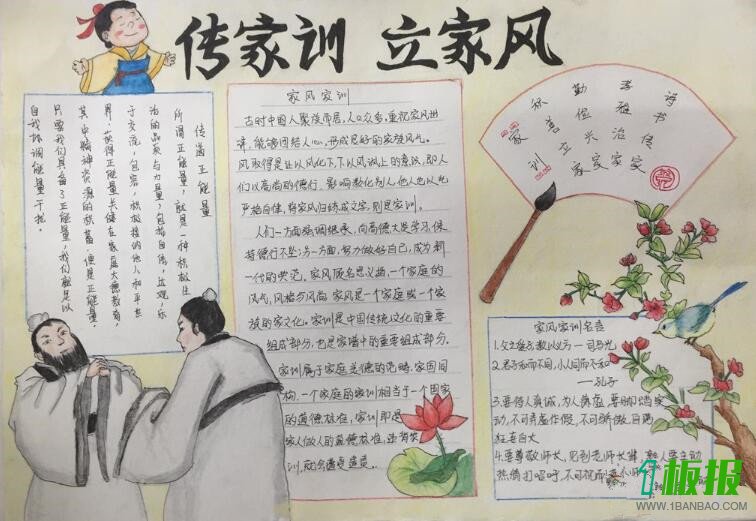 传家训 立家风
传递正能量
所谓正能量，就是一种积极生
治的品质与力量，包括自信，达观，乐
其中精神资源的积蓄，便是正能量，
只要我们具备了正能量，我们就是以
家风家训
古时中国人聚族而居，人口众多，重视家风训
诫，能够团结人心，形成良好的家族风气。
风取得是让以风化下，下以风讽上的意识，即人
们以高尚的德行，影响教化别人，他人也从此
严格自律，将家风归纳成文字，则是家训。
人们一方面强调继承，向高德大贤学习，保
持德行不坠；另一方面，努力做好自己，成为新
一代的典范。家风顾名思义指一个家庭的
风气，风格与风尚 家风是一个家庭或一个家
族的家文化。家训是中国传统文化的重要
组成部分，也是家谱中的重要组成部分，
家训属于家庭美德的范畴，家国同
构，一个家庭的家训相当于一个国家
的道德标准，家训即是
家人做人的道德标准，
家训
名言
勤俭立家
孝雅兴家
治家
诗书传家
家风家训名言
1.父之爱子，教以义方——司马光
2.君子和而不同，小人同而不和
——孔子
3.要待人真诚，为人谦虚，要脚踏实
动，不可弄虚作假，不可骄傲，自满
狂妄自大
4.要尊敬师长，见到老师长辈，熟人要主动
热情打招呼，不可视而
板报
WWW.1BANBAO.COM